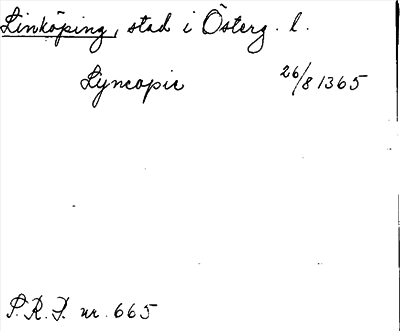 Linköping, stad i Österg. l.
Lyncopie 26/8 1365
P.R.F. nr. 665